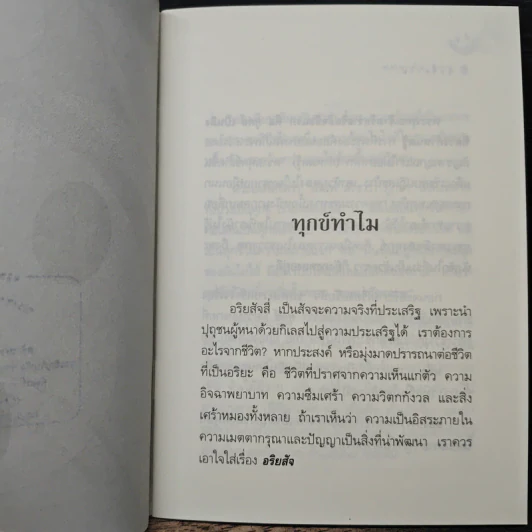 ทุกข์ทำไม
อริยสัจสี่ เป็นสัจจะความจริงที่ประเสริฐ เพราะนำ
ปุถุชนผู้หนาด้วยกิเลสไปสู่ความประเสริฐได้ เราต้องการ
อะไรจากชีวิต? หากประสงค์ หรือมุ่งมาดปรารถนาต่อชีวิต
ที่เป็นอริยะ คือ ชีวิตที่ปราศจากความเห็นแก่ตัว ความ
อิจฉาพยาบาท ความซึมเศร้า ความวิตกกังวล และสิ่ง
เศร้าหมองทั้งหลาย ถ้าเราเห็นว่า ความเป็นอิสระภายใน
ความเมตตากรุณาและปัญญาเป็นสิ่งที่น่าพัฒนา เราควร
เอาใจใส่เรื่อง อริยสัจ